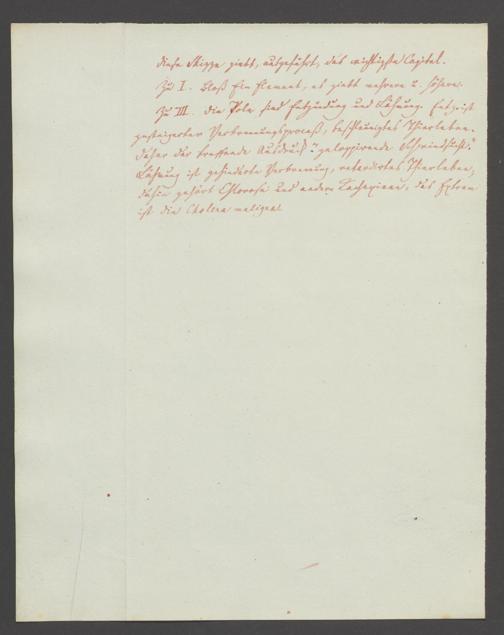 diese Skizze giebt, ausgeführt, das wichtigste Capitel.
Zu I. bloß Ein Element, es giebt mehrere u. höhere.
Zu III. die Pole sind Entzündung und Lähmung. Entz. ist
gesteigerter Verbrennungsproceß, beschleunigtes Thierleben.
daher der treffende Ausdruck: "galoppirende Schwindsucht."
Lähmung ist gehinderte Verbrennung, retardirtes Thierleben,
dahin gehört Chlorose und andere Kachexieen, das Extrem
ist die Cholera maligna!